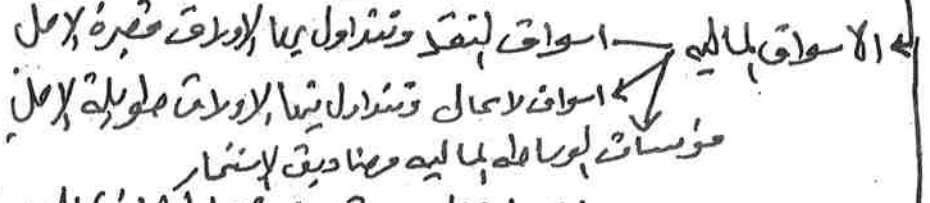 الاسواق المالية اسواق النقد وتتداول بها الاوراق قصيرة الاجل
اسواق لا حال وتتداول بها الاوراق طويلة الاجل
مؤسسات الوساطه الماليه وصناديق الاستثمار